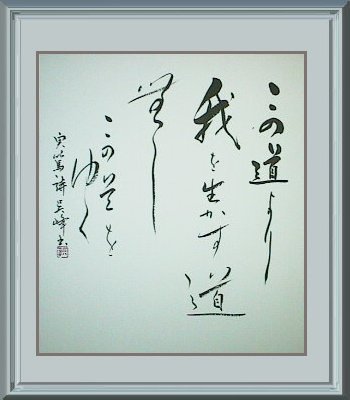 この道より
我を生かす道
無し
この道を
ゆく
実篤詩 峰書